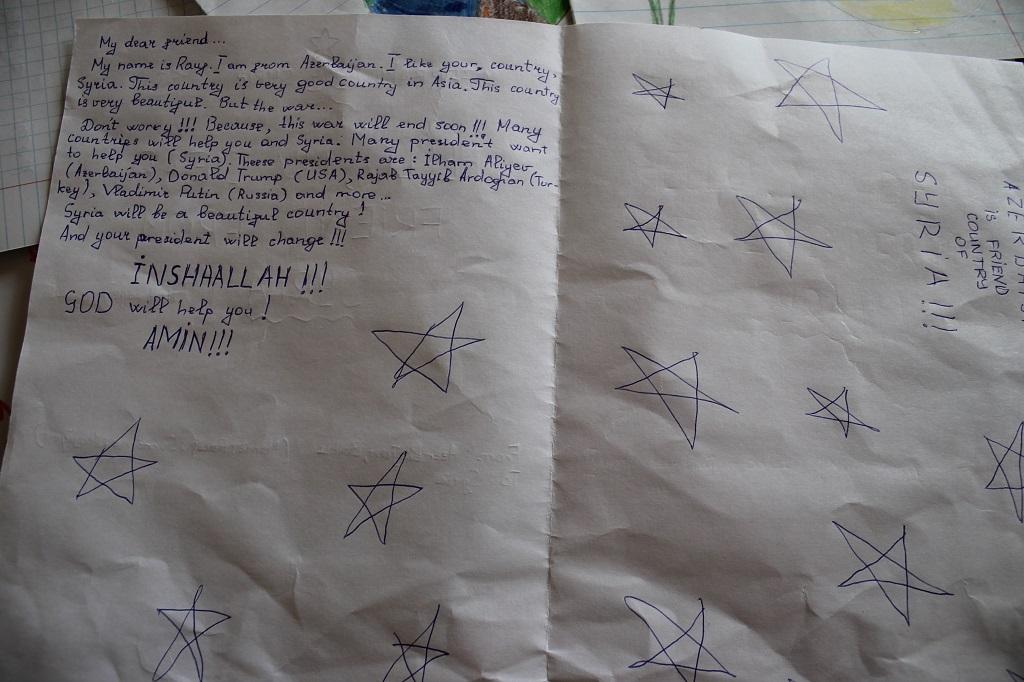 My dear friend...
My name is Rauf. I am from Azerbaijan. I like your, country,
Syria. This country is very good country in Asia. This country
is very beautiful. But the war...
Don't worry!!! Because, this war will end soon!!! Many
countries will help you and Syria. Many president want
to help you (Syria). Theese presidents are: İlham Aliyev
(Azerbaijan), Donald Trump (USA), Rajab Tayyib Ardoghan (Tur-
key), Vladimir Putin (Russia) and more...
Syria will be a beautiful country!
And your president will change!!!
İNSHAALLAH!!!
GOD will help you!
AMİN!!!
is FRIEND
COUNTRY
OF
SYRİA!!!